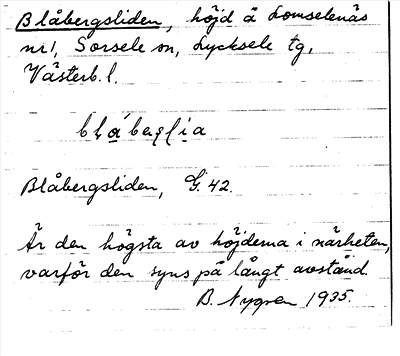 Blåbergsliden, höjd å Lomselenäs
nr 1, Sorsele sn, Lycksele tg,
Västerb. l.
Blåbergsliden, G. 42.
Är den högsta av höjderna i närheten,
varför den syns på långt avstånd.
B. Nygren 1935.